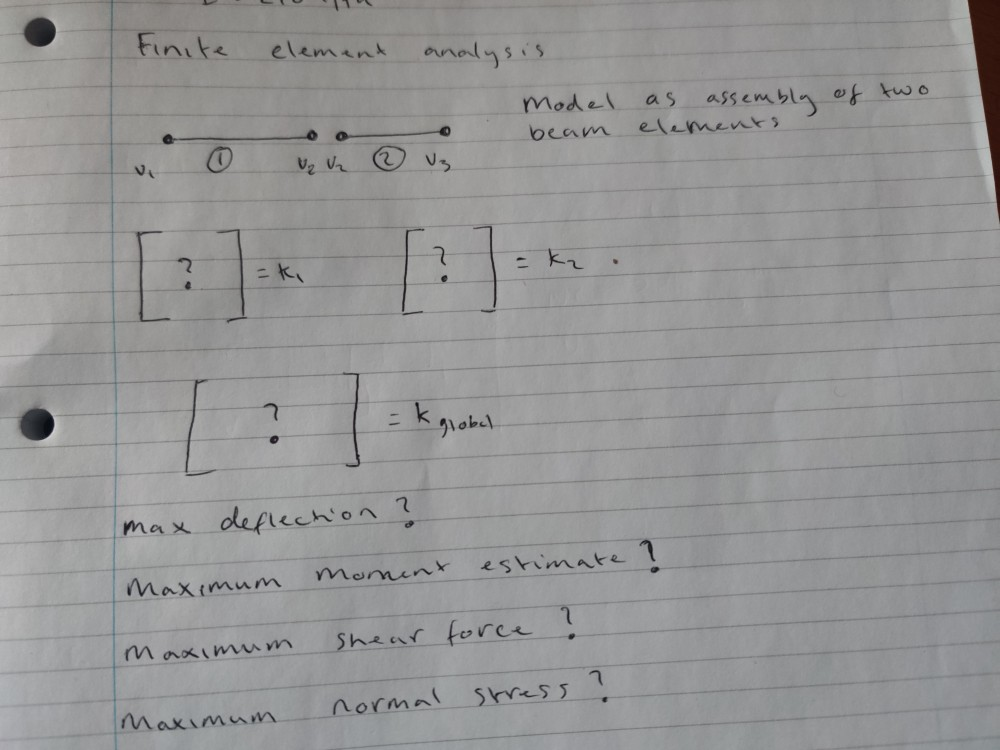 Finite element analysis
Model as assembly of two
beam elements
v₁ ① v₂ v₂ ② v₃
[ ? ] = k₁ [ ? ] = k₂ .
[ ? ] = k global
max deflection ?
Maximum moment estimate ?
Maximum shear force ?
Maximum normal stress ?